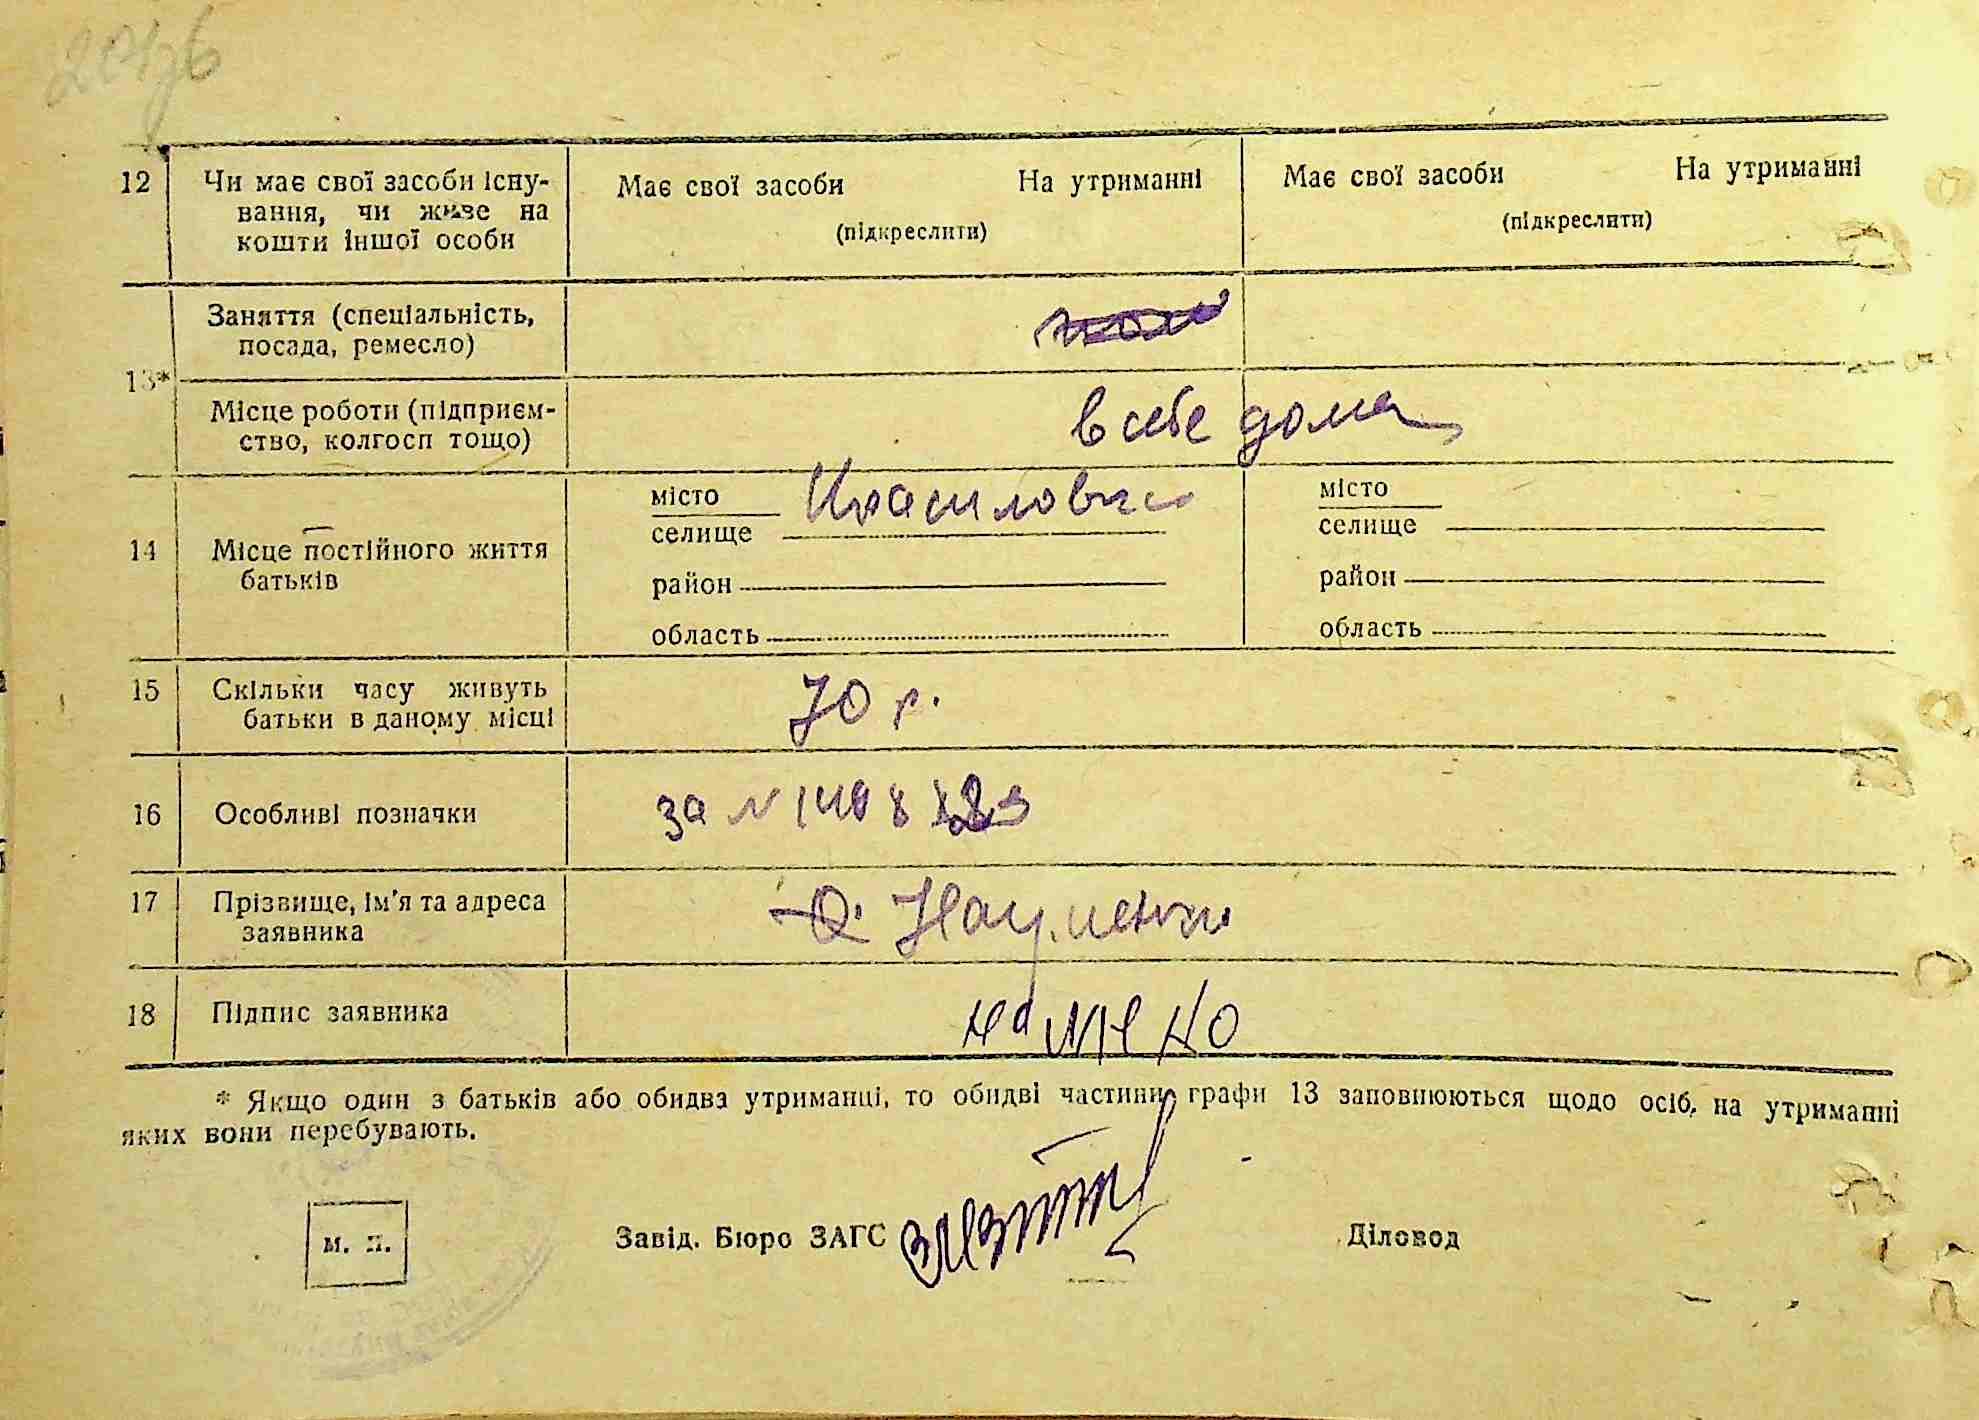 12 Чи має свої засоби існу- Має свої засоби На утриманні Має свої засоби На утриманні
вання, чи живе на (підкреслити) (підкреслити)
кошти іншої особи
Заняття (спеціальність,
посада, ремесло)
13*
Місце роботи (підприєм- в себе дома
ство, колгосп тощо)
місто місто
селище селище
14 Місце постійного життя
батьків
район район
область область
15 Скільки часу живуть 70 р.
батьки в даному місці
16 Особливі позначки за N
17 Прізвище, ім'я та адреса
заявника
18 Підпис заявника
* Якщо один з батьків або обидва утриманці, то обидві частини графи 13 заповнюються щодо осіб, на утриманні
яких вони перебувають.
м. п. Завід. Бюро ЗАГС Діловод